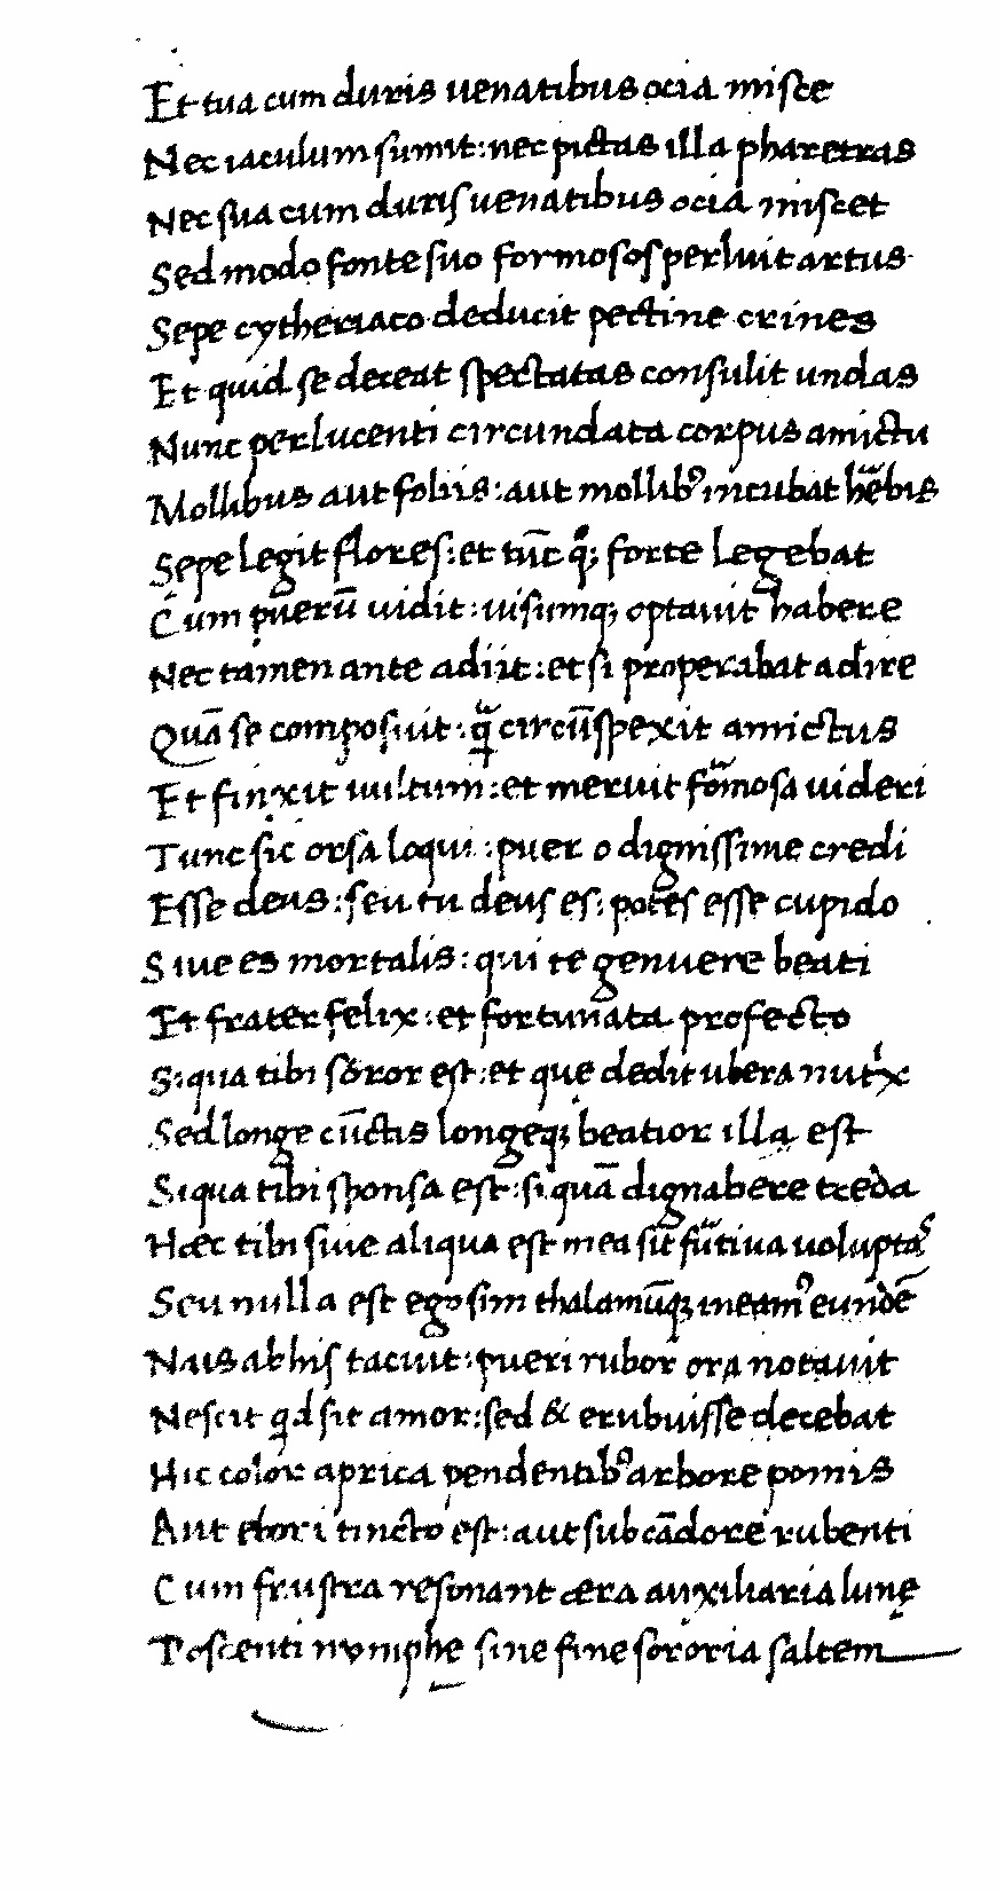 Et tua cum duris uenatibus ocia misce
Nec iaculum sumit: nec pictas illa pharetras
Nec sua cum duris uenatibus ocia miscet
Sed modo fonte suo formosos perluit artus
Sepe cytheriaco deducit pectine crines
Et quid se deceat spectatas consulit undas
Nunc perlucenti circundata corpus amictu
Mollibus aut foliis: aut mollibꝰ incubat hͣebis
Sepe legit flores: et tūc qͦꝫ forte legebat
Cum puerū uidit: uisumqꝫ optauit habere
Nec tamen ante adiit: et si properabat adire
Quā se composuit: q̱ͣ circūspexit amictus
Et finxit uultum: et meruit foͣmosa uideri
Tunc sic orsa loqui: puer o dignissime credi
Esse deus: seu tu deus es: potes esse cupido
Siue es mortalis: qui te genuere beati
Et frater felix: et fortunata profecto
Si qua tibi soror est: et quę dedit ubera nutͥx
Sed longe cūctis longeqꝫ beatior illa est
Si qua tibi sponsa est: si quā dignabere teeda
Hæc tibi siue aliqua est mea sit fuͣtiua uoluptaˢ
Seu nulla est ego sim thalamūqꝫ ineamꝰ eundē
Nais ab his tacuit: pueri rubor ora notauit
Nescit qd sit amor: sed & erubuisse decebat
Hic color aprica pendentibꝰ arbore pomis
Aut ebori tincto est: aut sub cādore rubenti
Cum frustra resonant æra auxiliaria lunę
Poscenti nymphę sine fine sororia saltem